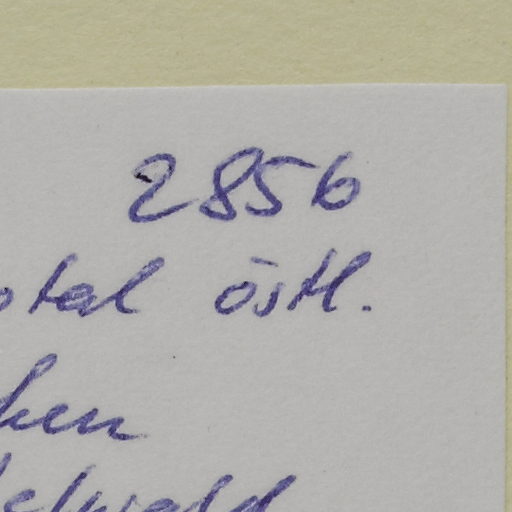 2856
otal östl.
hen
elwald